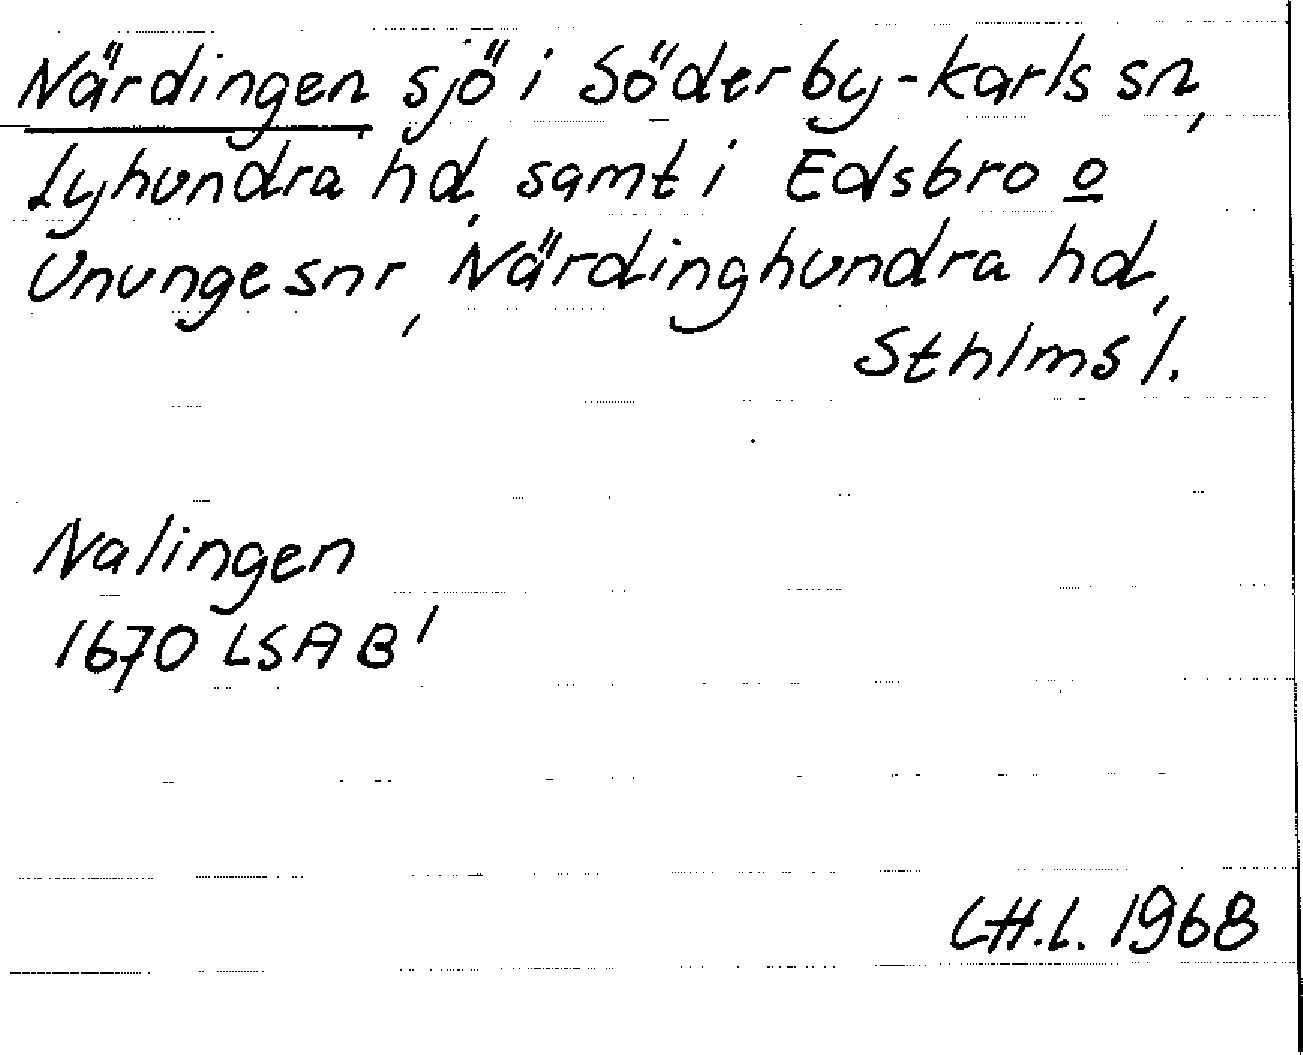 Närdingen sjö i Söderby-Karls sn,
Lyhundra hd, samt i Edsbro o
Ununge snr, Närdinghundra hd,
Sthlms l.
Nalingen
1670 LSA B'
C.H.L. 1968